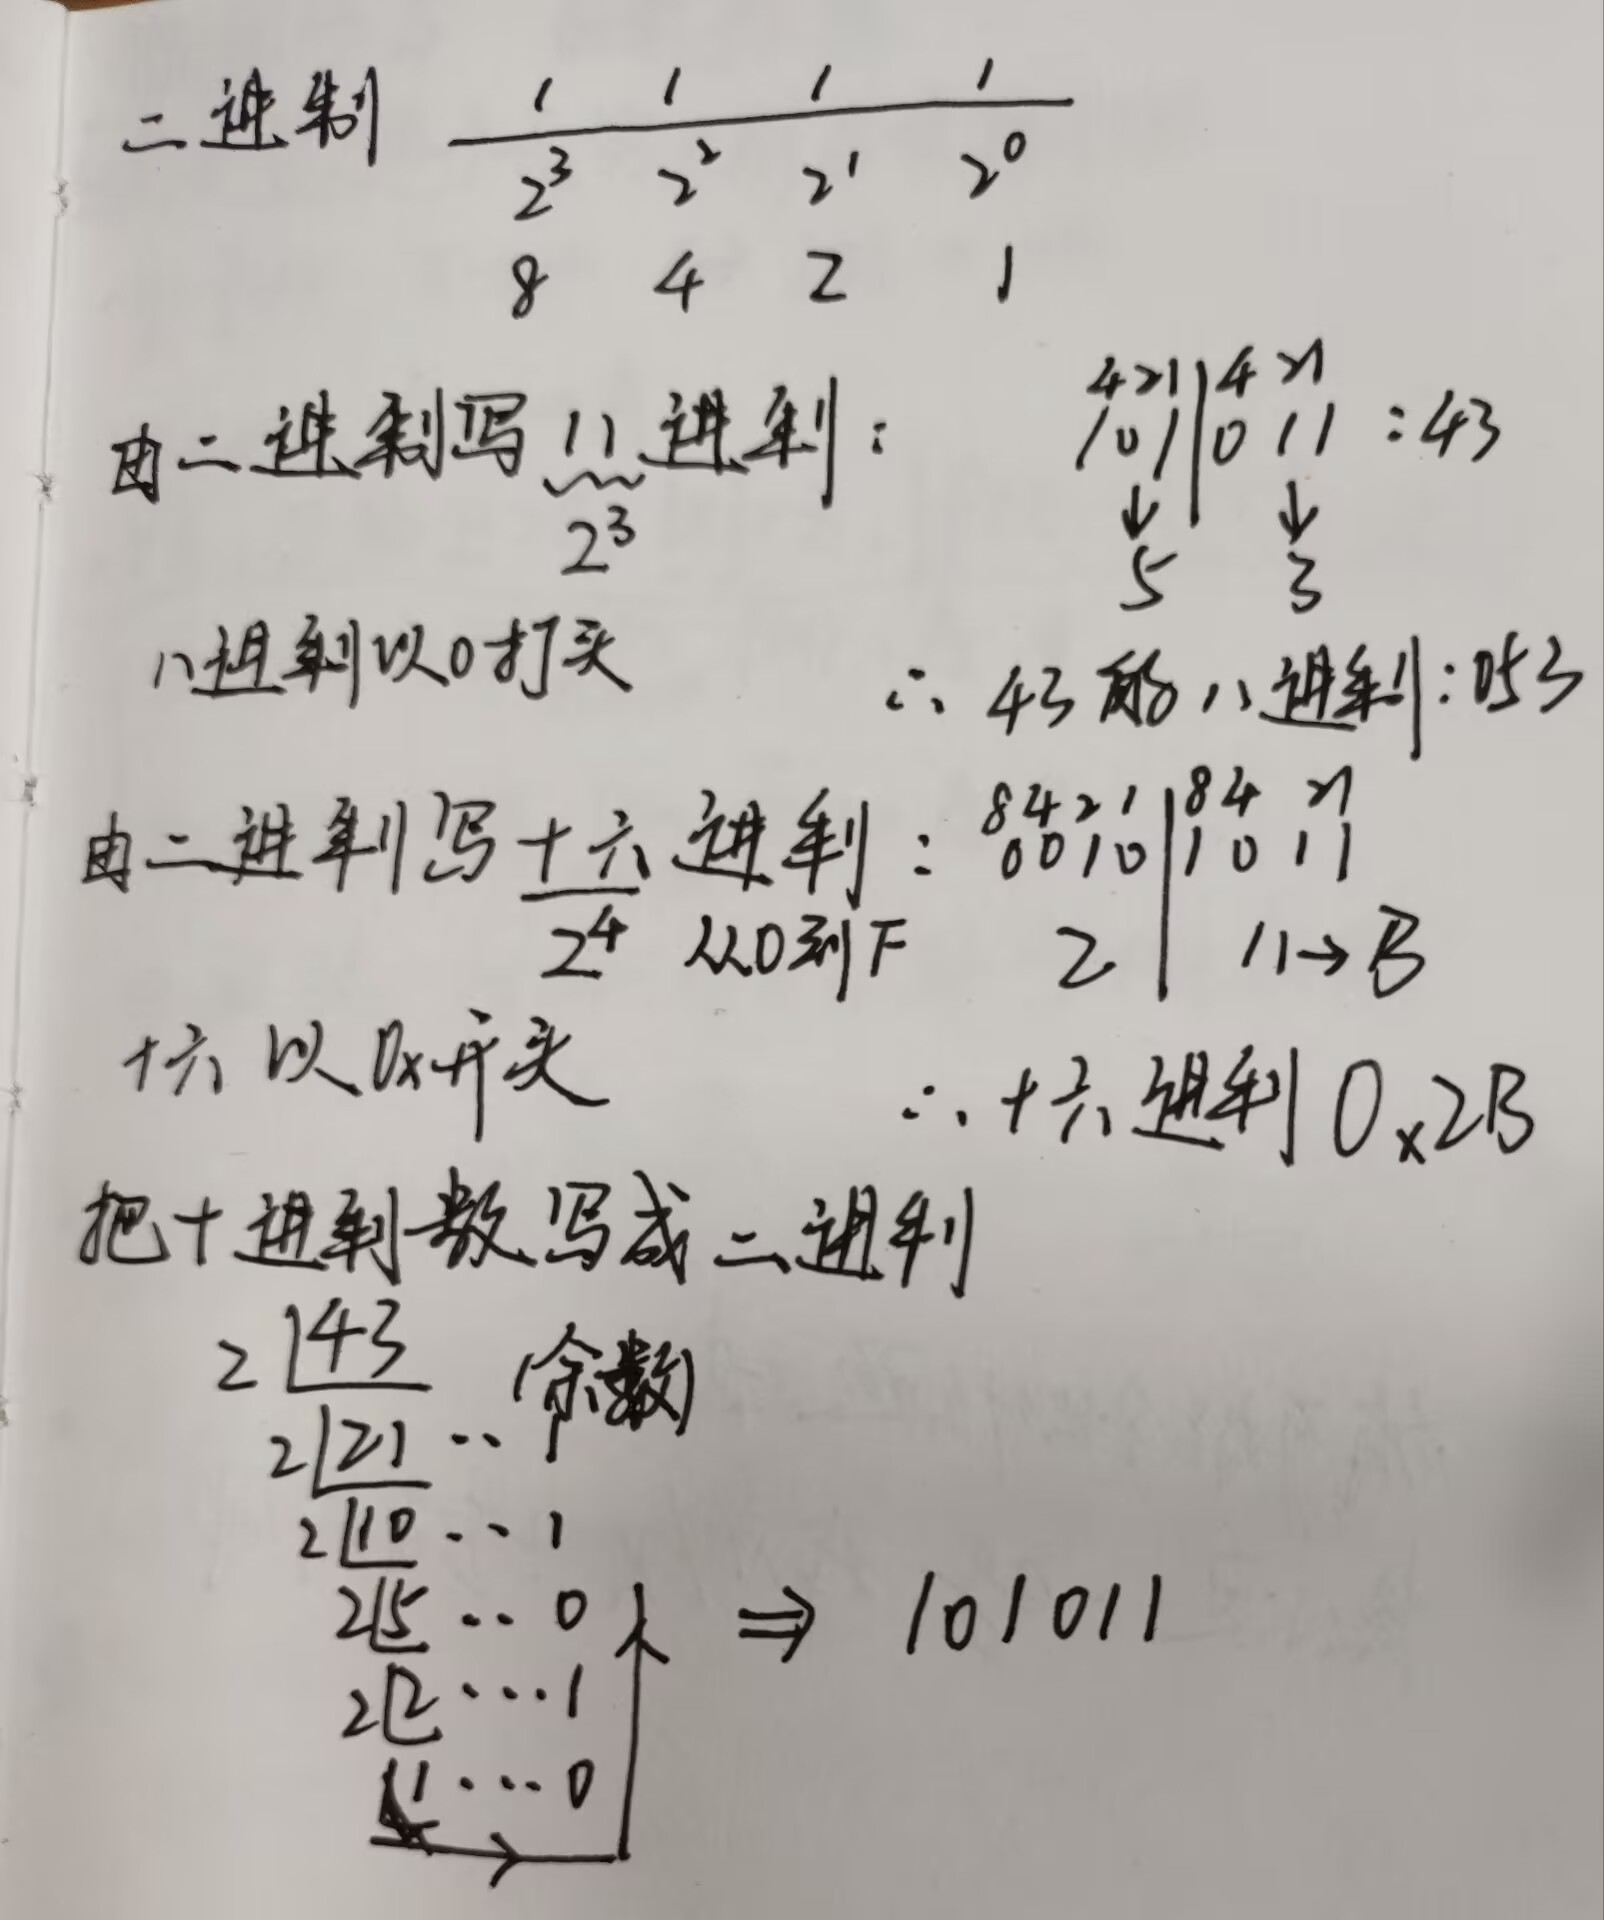 二进制 1 1 1 1
2³ 2² 2¹ 2⁰
8 4 2 1
421|421
由二进制写八进制: 101|011 :43
2³ ↓ ↓
5 3
八进制以0打头
∴ 43的八进制:053
8421|8421
由二进制写十六进制: 0010|1011
2⁴ 从0到F 2 | 11→B
十六以0x开头
∴十六进制 0x2B
把十进制数写成二进制
2|43 (余数)
2|21 ‥ 1
2|10 ‥ 1
2|5 ‥ 0 ⇒ 101011
2|2 … 1
1 … 0